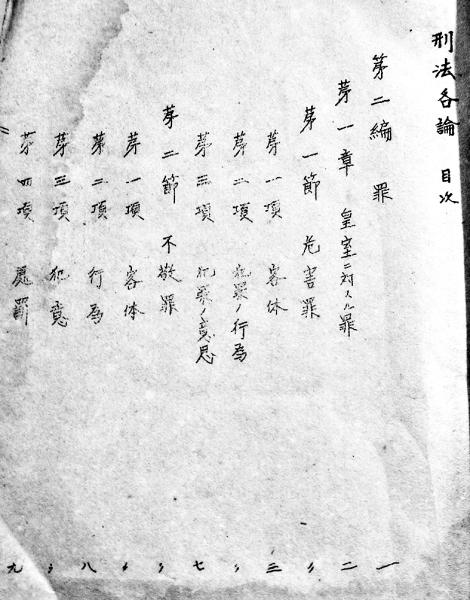 刑法各論 目次
第二編 罪 一
第一章 皇室ニ対スル罪 二
第一節 危害罪 〃
第一項 客体 三
第二項 犯罪ノ行為 〃
第三項 犯罪ノ意思 七
第二節 不敬罪 〃
第一項 客体 〃
第二項 行為 八
第三項 犯意 〃
第四項 罪罰 九